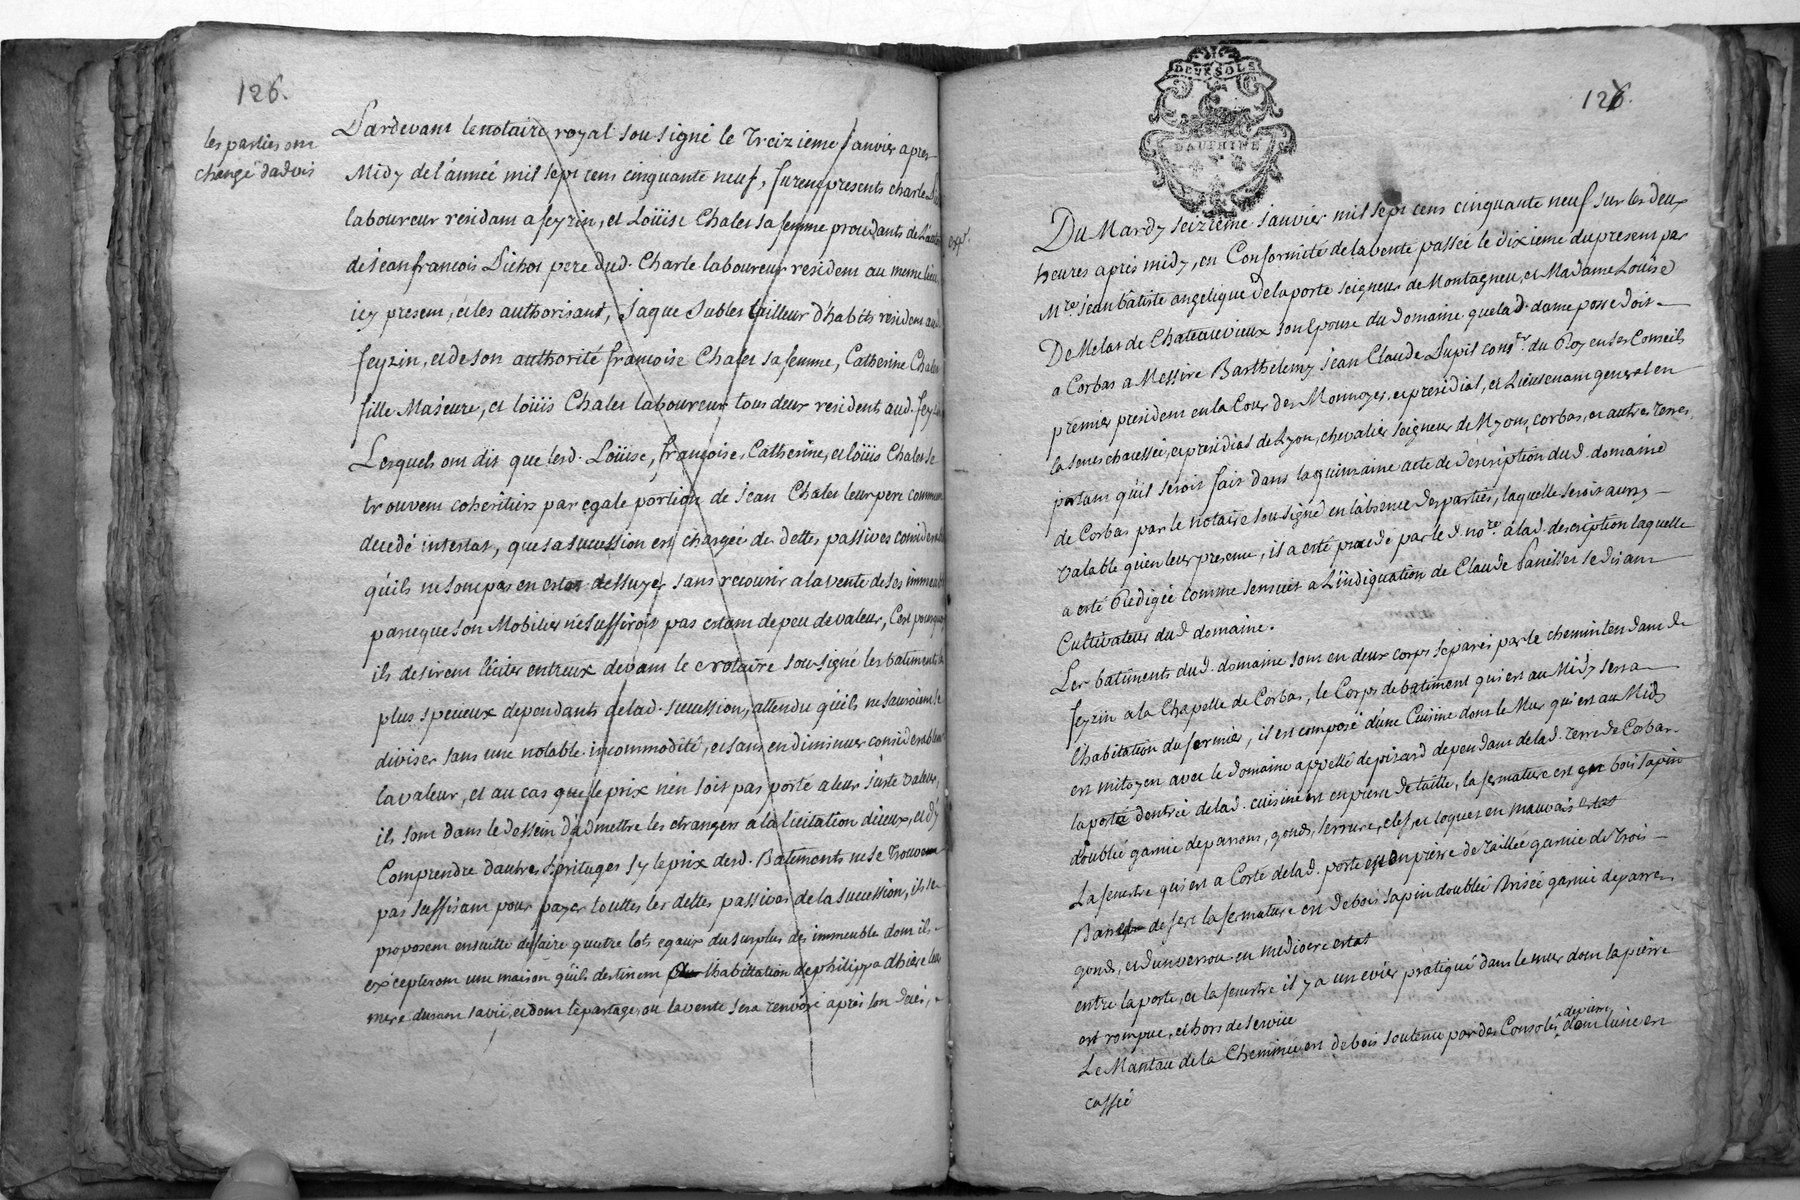 126.
les parties ont
changé d'advis
Pardevant le notaire royal sousigné le treizieme Janvier apres
Midy de l'année mil sept cens cinquante neuf, furent presents charle
laboureur residant a feyzin, et Loüise Chalet sa femme procedants de l'autorité
de Jean françois Pichot pere dud. Charle laboureur resident au meme lieu
icy present, et les authorisant, Jaque Sublet tailleur d'habits resident aud.
feyzin, et de son authorité françoise Chalet sa femme, Catherine Chalet
fille Majeure, et loüis Chalet laboureur tous deux residents aud. feyzin
Lesquels ont dit que lesd. Loüise, françoise, Catherine, et loüis Chalet se
trouvent coheritiers par egale portion de Jean Chalet leur pere commun
decedé intestat, que sa succession est chargée de dettes passives considerables
qu'ils ne sont pas en estat d'essuyer sans recourir a la vente de ses immeubles
parceque son Mobilier ne suffiroit pas estant de peu de valeur, C'est pourquoy
ils desirent liciter entreux devant le notaire sousigné les batiments les
plus specieux dependants de lad. succession, attendu qu'ils ne sauroient se
diviser sans une notable incommodité, et sans en diminuer considerablement
la valeur, et au cas que le prix n'en soit pas porté a leur juste valeur,
ils sont dans le dessein d'admettre les etrangers a la licitation d'iceux, et d'y
Comprendre d'autres heritages sy le prix desd. Batiments ne se trouve
pas suffisant pour payer touttes les dettes passives de la succession, ils se
proposent ensuitte de faire quatre lots egaux du surplus des immeuble dont ils
exçepteront une maison qu'ils destinent l'habittation de philippa dhiere leur
mere durant sa vie, et dont le partage, ou la vente sera renvoyé apres son decés,
DEUX SOLS
DAUPHINE
126.
expé.
Du Mardy seizieme Janvier mil sept cens cinquante neuf sur les deux
heures aprés midy, en Conformité de la vente passée le dixieme du present par
Mre. Jean batiste angelique de la porte seigneur de Montagneu, et Madame Loüise
De Melat de Chateauvieux son Epouse du domaine que lad. dame possedoit
a Corbas a Messire Barthelemy Jean Claude Pupil consr. du Roy en ses Conseils
premier president en la Cour des Monnoyes, et presidial, et Lieutenant general en
la senechaussée, et presidial de Lyon, chevalier seigneur de Myons, corbas, et autres terres
portant qu'il seroit fait dans la quinzaine acte de description dud. domaine
de Corbas par le notaire sousigné en l'absence des parties, laquelle seroit aussy
valable qu'en leur presence, il a esté procedé par led. nore. a lad. description laquelle
a esté Redigée comme sensuit a l'indiquation de Claude Panissset se disant
Cultivateur dud. domaine.
Les batiments dud. domaine sont en deux corps separés par le chemin tendant de
feyzin a la Chapelle de Corbas, le Corps de batiment qui est au Midy sert a
l'habitation du fermier, il est composé d'une Cuisine dont le Mur qui est au Midy
est mitoyen avec le domaine appellé de pizard dependant de lad. Terre de Corbas.
la porte d'entrée de lad. cuisine est en pierre de taille, la fermature est en bois sapin
doublé garnie de parrons, gonds, serrure, clef, et loquet en mauvais etat
La fenestre qui est a Corté de lad. porte est en pierre de taillée garnie de trois
Barres de fer la fermature est de bois sapin doublé Brisée garnie de parres
gonds, et d'un verrou en mediocre estat
entre la porte, et la fenestre il y a un evier pratiqué dans le mur dont la pierre
est rompue, et hors de service
Le Mantau de la Cheminée est de bois soutenu par des Consoles de pierre dont l'une est
cassée